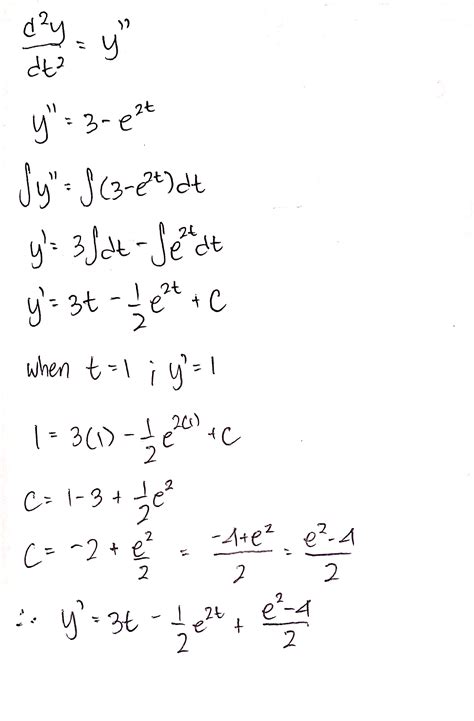 d²y/dt² = y''
y'' = 3 - e^{2t}
∫y'' = ∫(3 - e^{2t})dt
y' = 3∫dt - ∫e^{2t}dt
y' = 3t - 1/2 e^{2t} + C
when t = 1 ; y' = 1
1 = 3(1) - 1/2 e^{2(1)} + C
C = 1 - 3 + 1/2 e²
C = -2 + e²/2 = (-4+e²)/2 = (e²-4)/2
∴ y' = 3t - 1/2 e^{2t} + (e²-4)/2